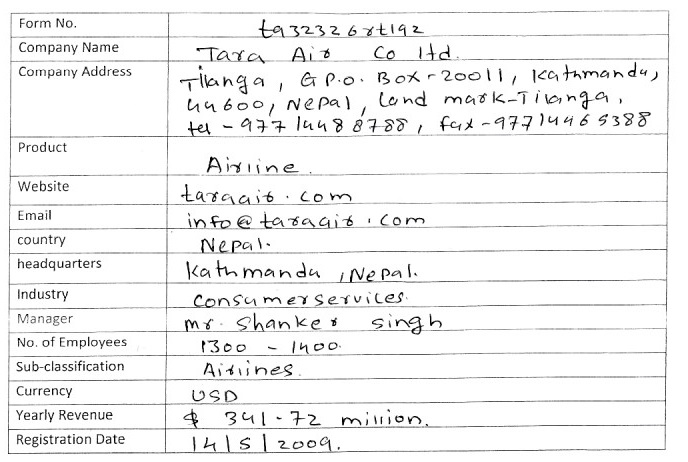 Form No. ta32326rt1q2
Company Name Tara Air Co ltd.
Company Address Tilanga, G.P.O. Box-20011, Kathmandu,
44600, Nepal, Land mark-Tilanga,
tel - 977 14488788, fax -97714465388
Product Airline.
Website taraair.com
Email info@taraair.com
country Nepal.
headquarters Kathmandu, Nepal.
Industry Consumer services.
Manager mr. Shanker singh
No. of Employees 1300 - 1400.
Sub-classification Airlines.
Currency USD
Yearly Revenue $ 341.72 million.
Registration Date 14/5/2009.